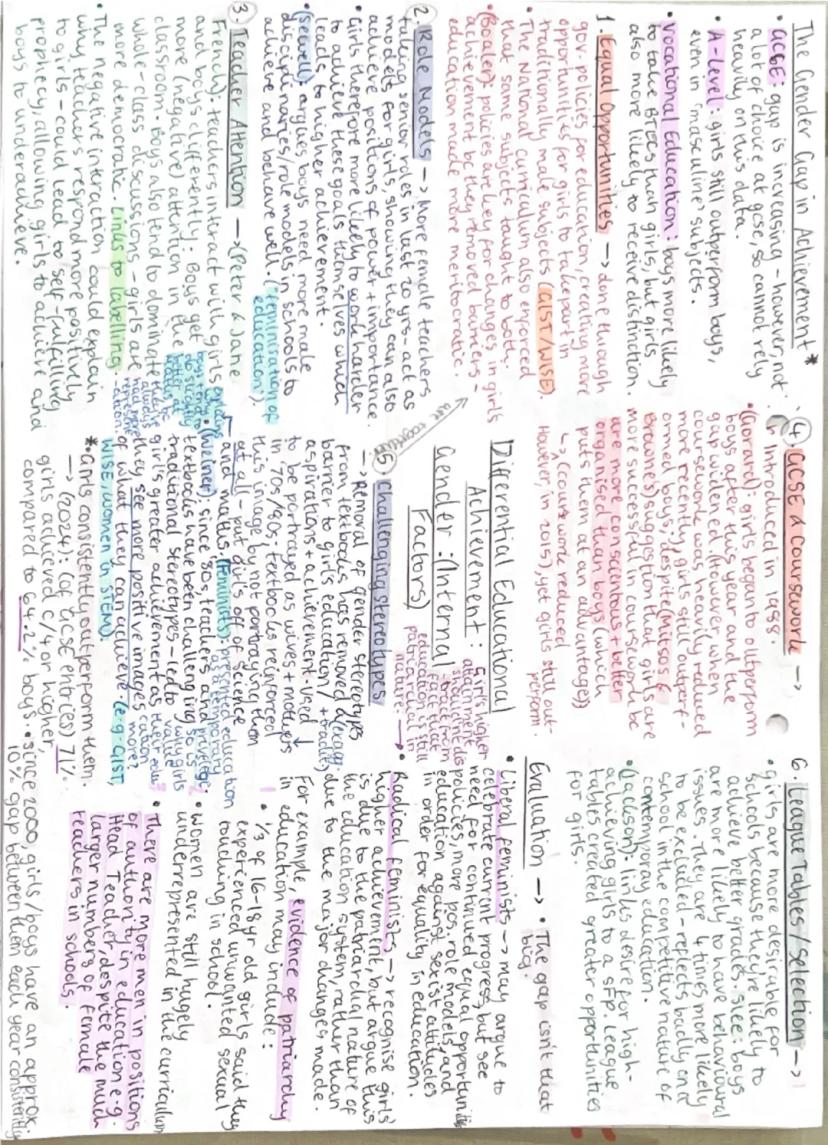 The Gender Gap in Achievement *
• GCSE: gap is increasing - however, not
a lot of choice at gcse, so cannot rely
heavily on this data.
• A-level: girls still outperform boys,
even in 'masculine' subjects.
• Vocational Education: boys more likely
to take BTECs than girls, but girls
also more likely to receive distinction.
1. Equal Opportunities → done through
gov. policies for education, creating more
opportunities for girls to take part in
traditionally male subjects (GIST/WISE).
• The National curriculum also enforced
that same subjects taught to both.
• (Boaler): policies are key for changes in girls
achievement bc they removed barriers -
education made more meritocratic.
2. Role Models → More female teachers
taking senior roles in last 20 yrs - act as
models for girls, showing they can also
achieve positions of power + importance.
• Girls therefore more likely to work harder
to achieve these goals themselves which
leads to higher achievement.
• (Sewell): argues boys need more male
disciplinaries/role models in schools to
achieve and behave well. (feminisation of
education)
3. Teacher Attention → (Peter & Jane
French): teachers interact with girls
and boys differently: Boys get
more (negative) attention in the
classroom • Boys also tend to dominate
whole-class discussions - girls are
more democratic. Links to labelling
• The negative interaction could explain
why teachers respond more positively
to girls - could lead to self-fulfilling
prophecy, allowing girls to achieve and
boys to underachieve.
4. GCSE & Coursework →
introduced in 1988
• (Gorard): girls began to outperform
boys after this year and the
gap widened. However, when
coursework was heavily reduced
more recently, girls still outperf-
ormed boys, despite (Mitsos &
Browne's) suggestion that girls are
more successful in coursework bc
are more conscientious + better
organised than boys (which
puts them at an advantage))
↳ (coursework reduced
However, in 2015), yet girls still out-
perform.
are together
Differential Educational
Achievement:
Gender: (Internal
Factors)
Girls higher
attainment
shouldn't dis-
tract from
fact that
education is still
patriarchal in
nature.→
5 Challenging stereotypes
→ Removal of gender stereotypes
from textbooks has removed a
barrier to girls education/
aspirations + achievement - used
to be portrayed as wives + mothers
in '70s/80s; textbooks reinforced
this image by not portraying them
at all - put girls off of science
and maths. (Feminists)
• (Weiner) since 80s, teachers and
textbooks have been challenging
traditional stereotypes - led to
girl's greater achievement as
they see more positive images
of what they can achieve. (e.g. GIST,
WISE, women in STEM).
*• Girls consistently outperform them.
→ (2024): (of GCSE entries) 71%
girls achieved C/4 or higher
compared to 64.2% boys.
• Since 2000, girls/boys have an approx.
10% gap between them each year consistently
6. League Tables/selection →
• girls are more desirable for
schools because they're likely to
achieve better grades. Slee: boys
are more likely to have behavioural
issues. They are 4 times more likely
to be excluded - reflects badly on
school in the competitive nature of
contemporary education.
• (Jackson): links desire for high-
achieving girls to a SFP. League
tables created greater opportunities
for girls.
Evaluation → • The gap isn't that
big.
• Liberal feminists → may argue to
celebrate current progress, but see
need for continued equal opportunities
policies, more pos. role models, and
education against sexist attitudes
in order for equality in education.
• Radical feminists → recognise girls'
higher achievement, but argue this
is due to the patriarchal nature of
the education system, rather than
due to the major changes made.
For example, evidence of patriarchy
in education may include:
• 1/3 of 16-18 yr old girls said they
experienced unwanted sexual
touching in school.
• Women are still hugely
underrepresented in the curriculum
• There are more men in positions
of authority in education e.g.
Head Teacher, despite the much
larger numbers of female
teachers in schools.